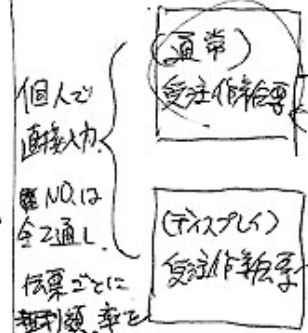 個人で
直接入力.
NO.は
全て通し.
伝票ごとに
粗利額.率を
(通常)
受注作業伝票
(ディスプレイ)
受注作業伝票